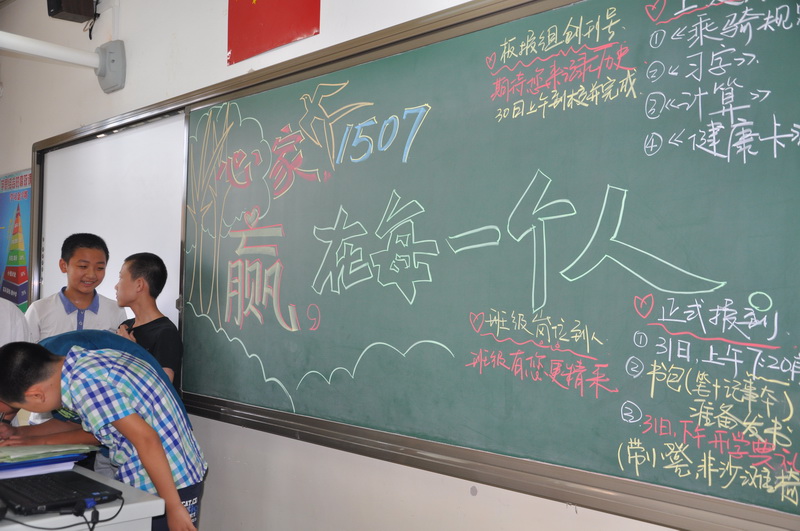 心家 1507
赢在每一个人
板报组创刊号
期待您来谱历史
30日上午到校并完成
①《乘骑规
②《习字》
③《计算》
④《健康卡》
班级岗位到人
班级有您更精采
正式报到
① 31日,上午7:20
② 书包(笔+记事本)
准备发书
③ 31日,下午开学典礼
(带小凳,非沙滩椅